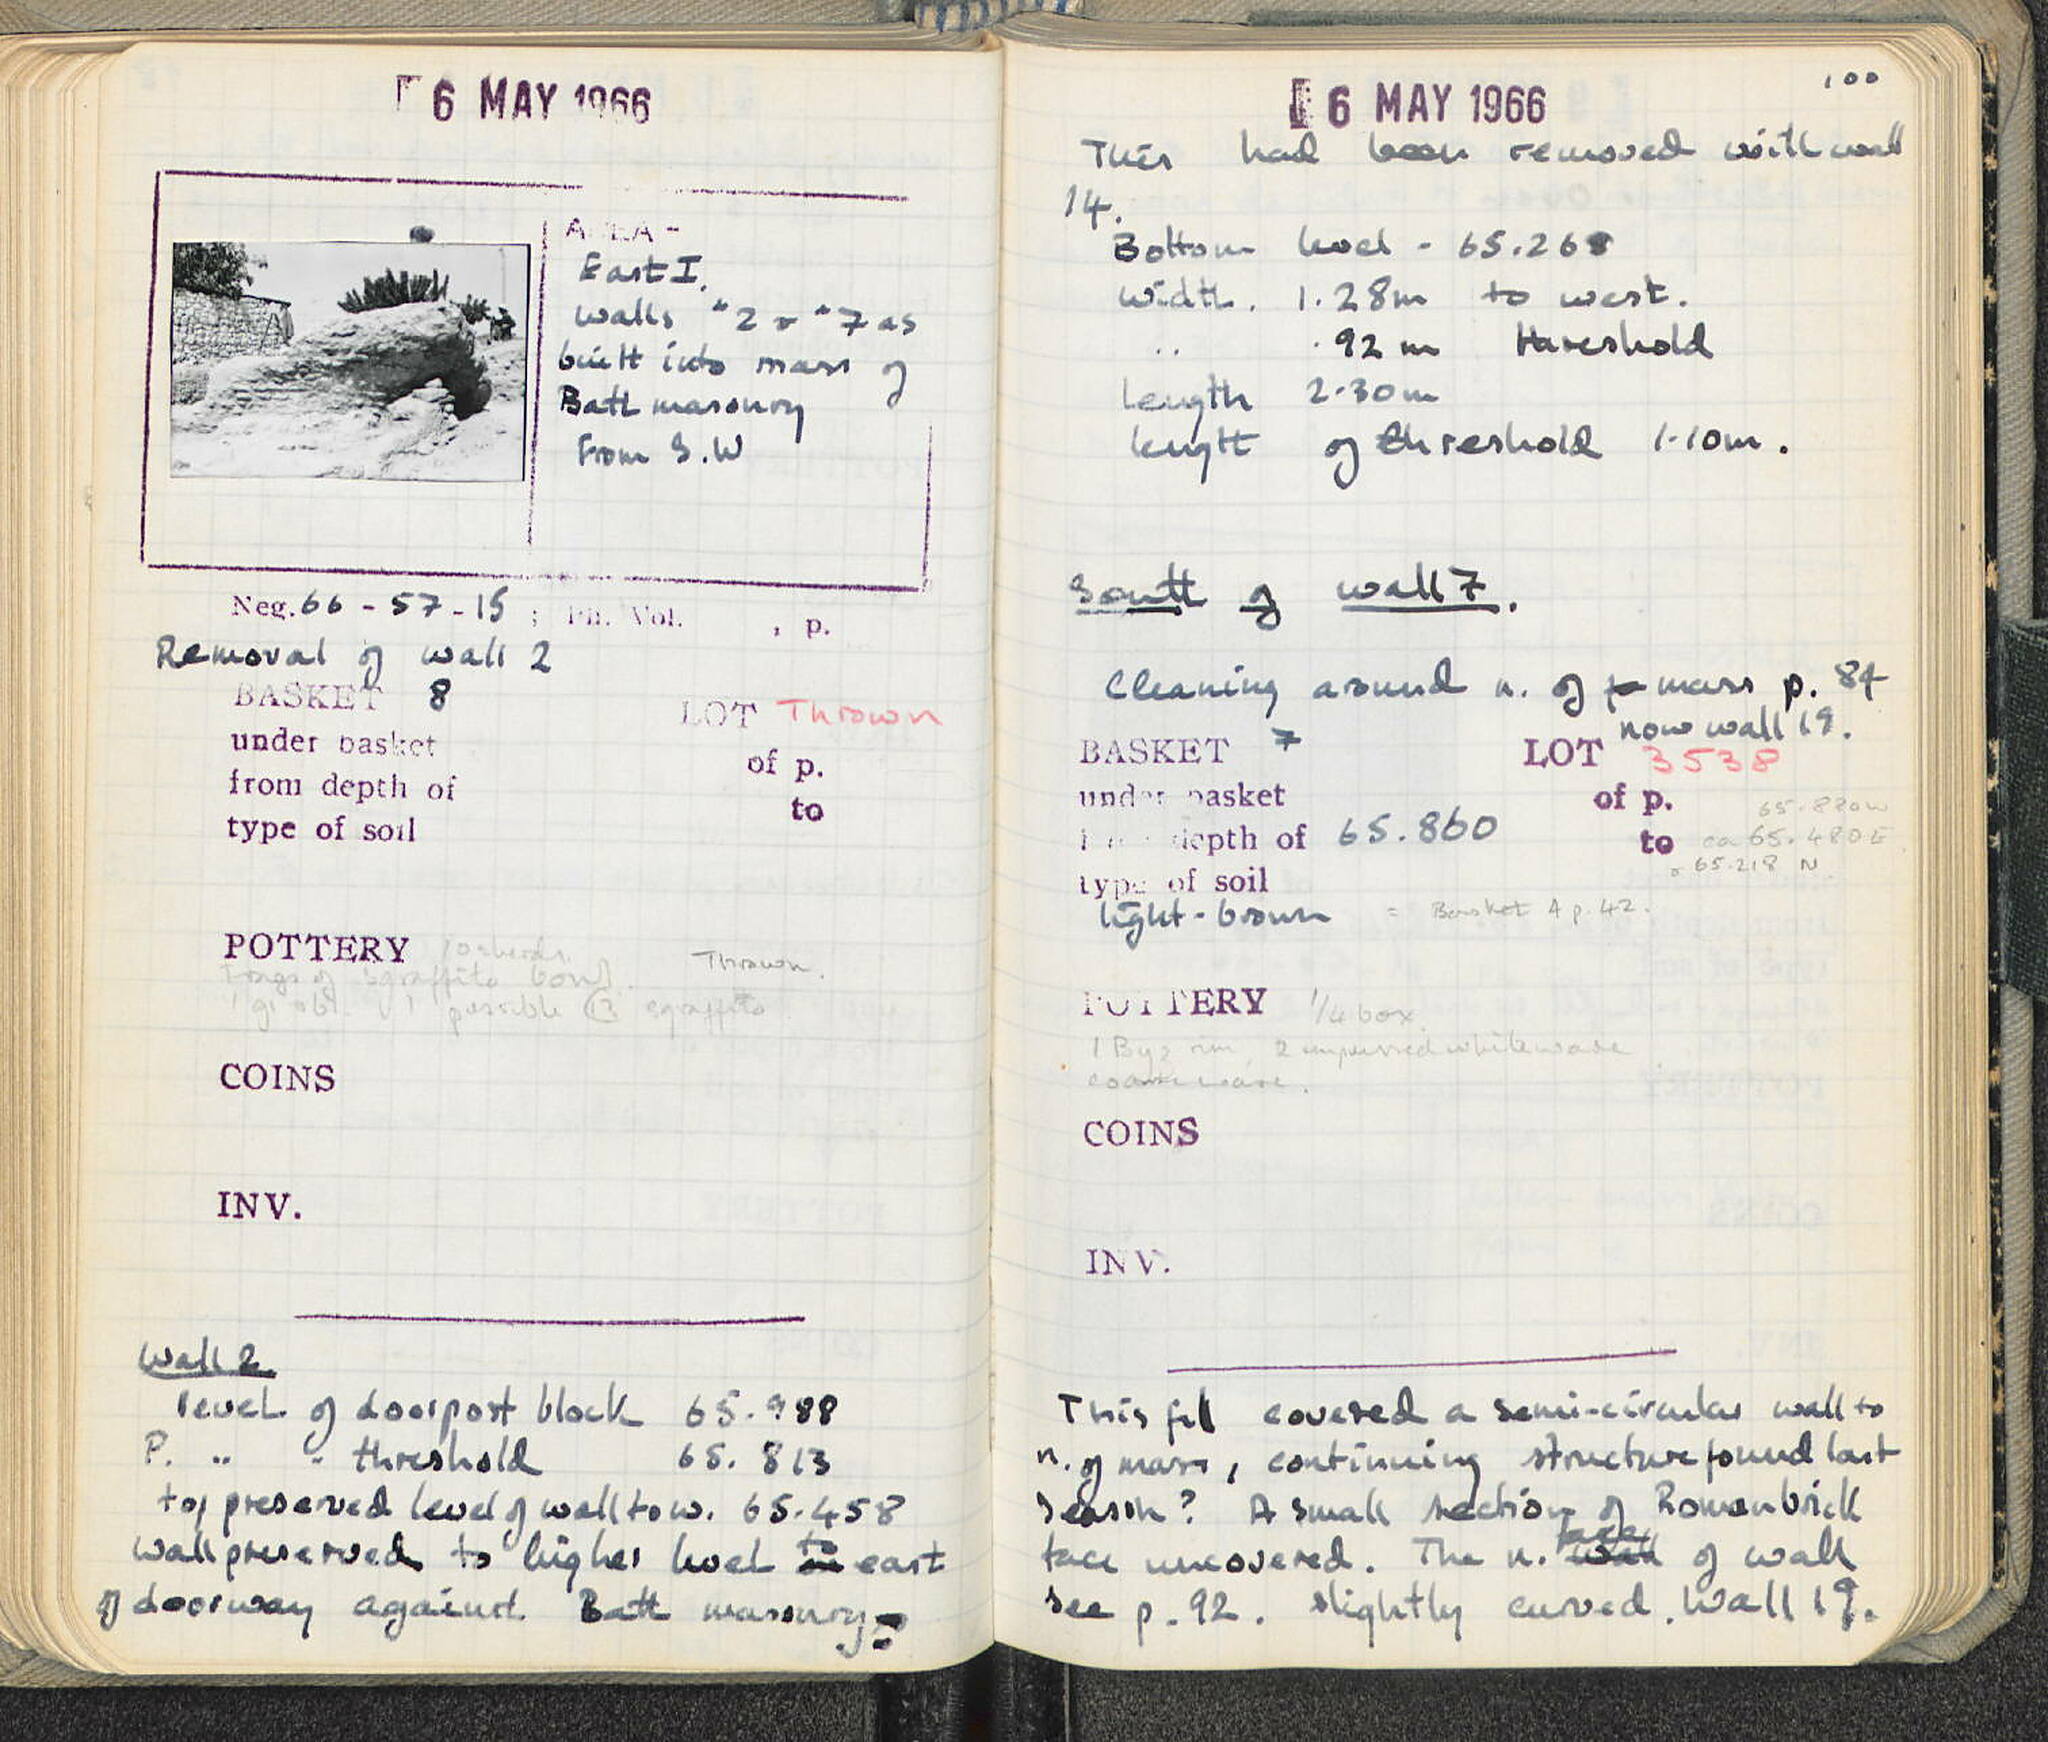 6 MAY 1966
AREA -
East I.
Walls "2 + "7 as
built into mass of
Bath masonry
From S.W
Neg. 66 - 57 - 15 ; Ph. Vol. , p.
Removal of wall 2
BASKET 8
LOT Thrown
under basket
of p.
from depth of
to
type of soil
POTTERY
Thrown.
frags of sgraffito bowl.
1 possible sgraffito
COINS
INV.
Wall 2
level of doorpost block 65.988
P. " " threshold 65.813
top preserved level of wall to w. 65.458
Wall preserved to higher level to east
of doorway against Bath masonry
100
6 MAY 1966
This had been removed with wall
14.
Bottom level - 65.268
Width. 1.28m to west.
" .92 m threshold
Length 2.30m
Length of threshold 1.10m.
South of wall 7.
Cleaning around n. of mass p. 84
now wall 19.
BASKET 7
LOT 3538
under basket
of p.
65.880 W
from depth of 65.860
to ca 65.480 E
65.218 N.
type of soil
light-brown = Basket 4 p. 42.
POTTERY 1/4 box
1 Byz rim, 2 impressed whiteware
coarseware.
COINS
INV.
This fill covered a semi-circular wall to
n. of mass, continuing structure found last
season? A small section of Roman brick
face uncovered. The n. face of wall
see p. 92. slightly curved. Wall 19.